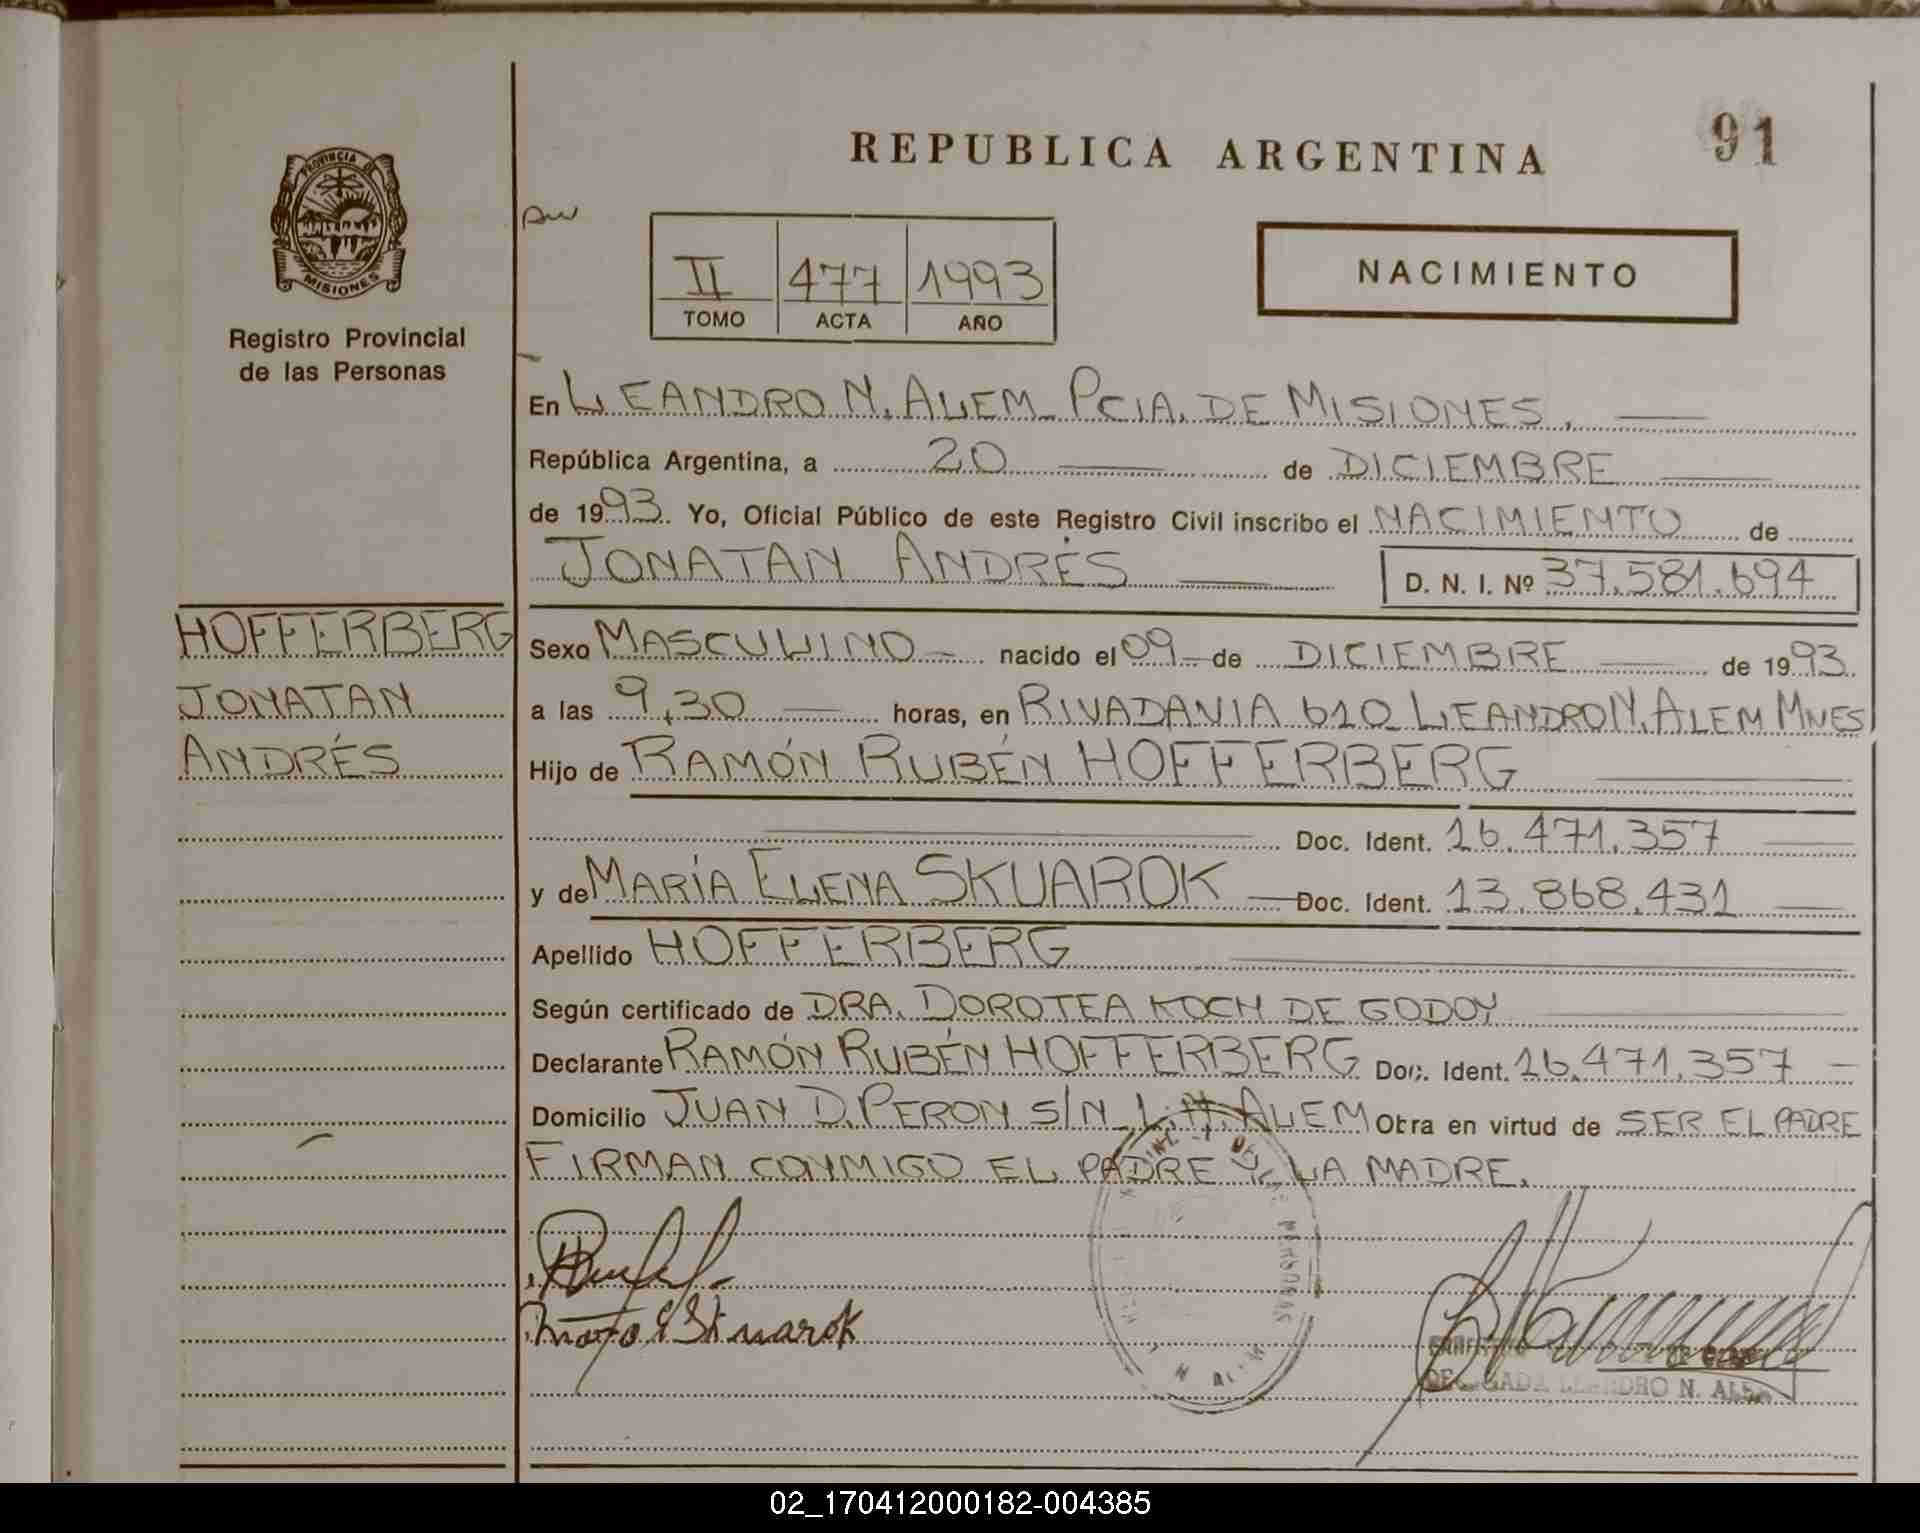 REPUBLICA ARGENTINA
91
PROVINCIA DE
MISIONES
Registro Provincial
de las Personas
II 477 1993
TOMO ACTA AÑO
NACIMIENTO
En LEANDRO N. ALEM PCIA. DE MISIONES,
República Argentina, a 20 de DICIEMBRE
de 1993. Yo, Oficial Público de este Registro Civil inscribo el NACIMIENTO de
JONATAN ANDRÉS D. N. I. Nº 37.581.694
HOFFERBERG
JONATAN
ANDRÉS
Sexo MASCULINO nacido el 09 de DICIEMBRE de 1993.
a las 9,30 horas, en RIVADAVIA 610 LEANDRO N. ALEM MNES
Hijo de RAMÓN RUBÉN HOFFERBERG
Doc. Ident. 16.471.357
y de MARÍA ELENA SKUAROK Doc. Ident. 13.868.431
Apellido HOFFERBERG
Según certificado de DRA. DOROTEA KOCH DE GODOY
Declarante RAMÓN RUBÉN HOFFERBERG Doc. Ident. 16.471.357
Domicilio JUAN D. PERON S/N L. N. ALEM Obra en virtud de SER EL PADRE
FIRMAN CONMIGO EL PADRE Y LA MADRE.
Skuarok
LEANDRO N. ALEM
02_170412000182-004385